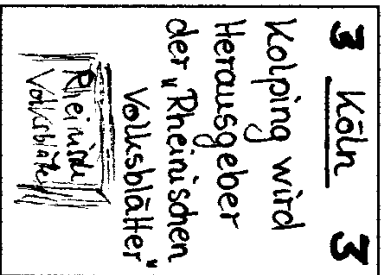 3 Köln 3
Kolping wird
Herausgeber
der „Rheinischen
Volksblätter"
Rheinische
Volksblätter